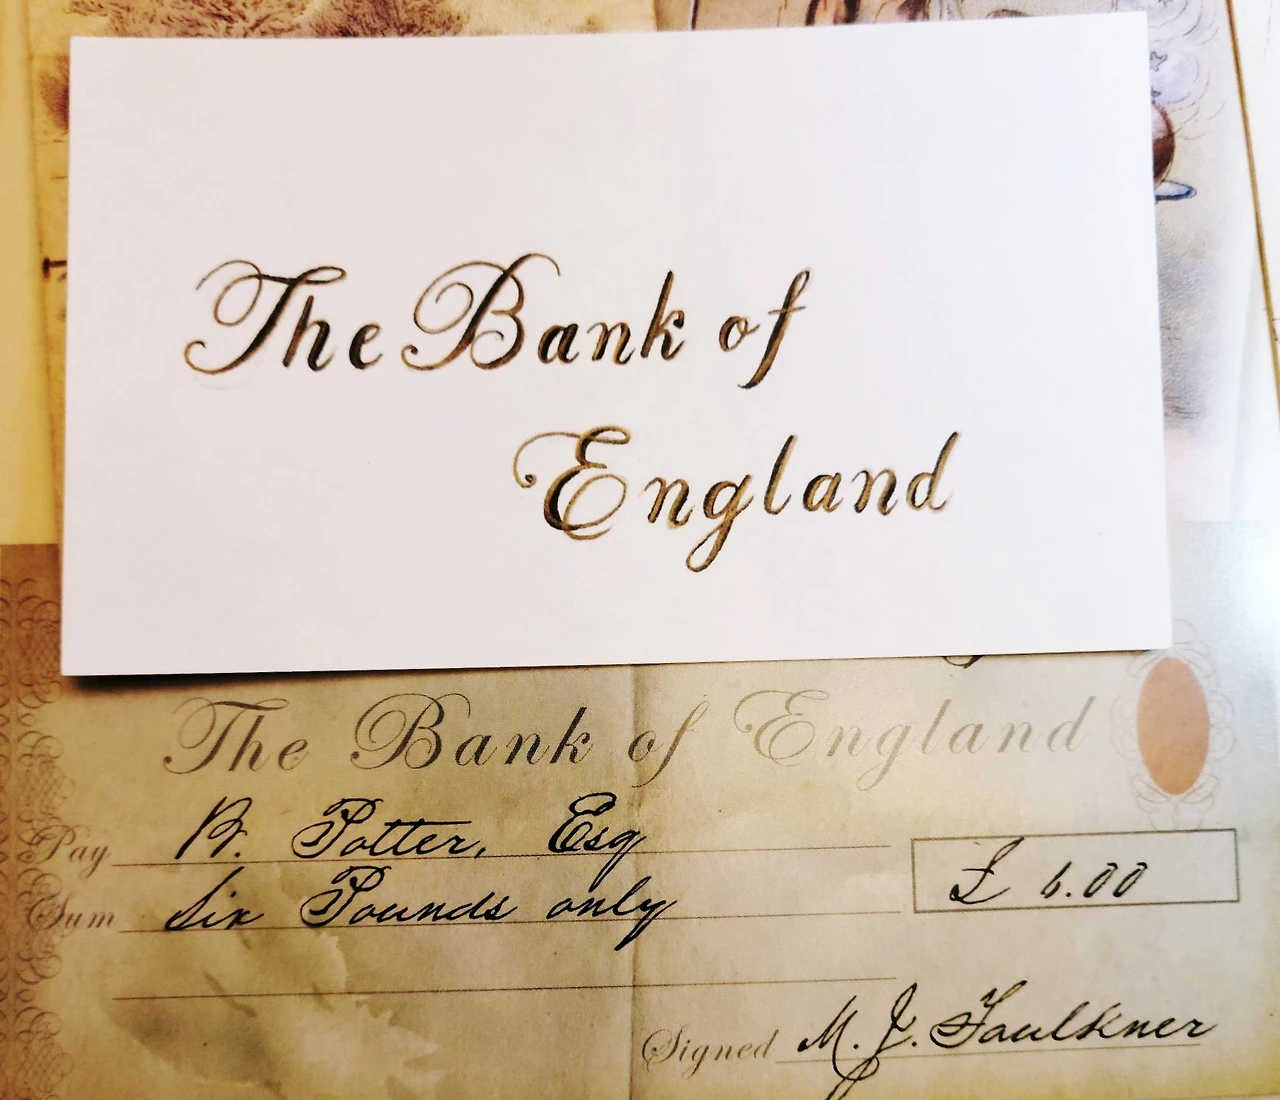 The Bank of
England
The Bank of England
Pay B. Potter, Esq
£ 6.00
Sum Six Pounds only
Signed M. J. Faulkner